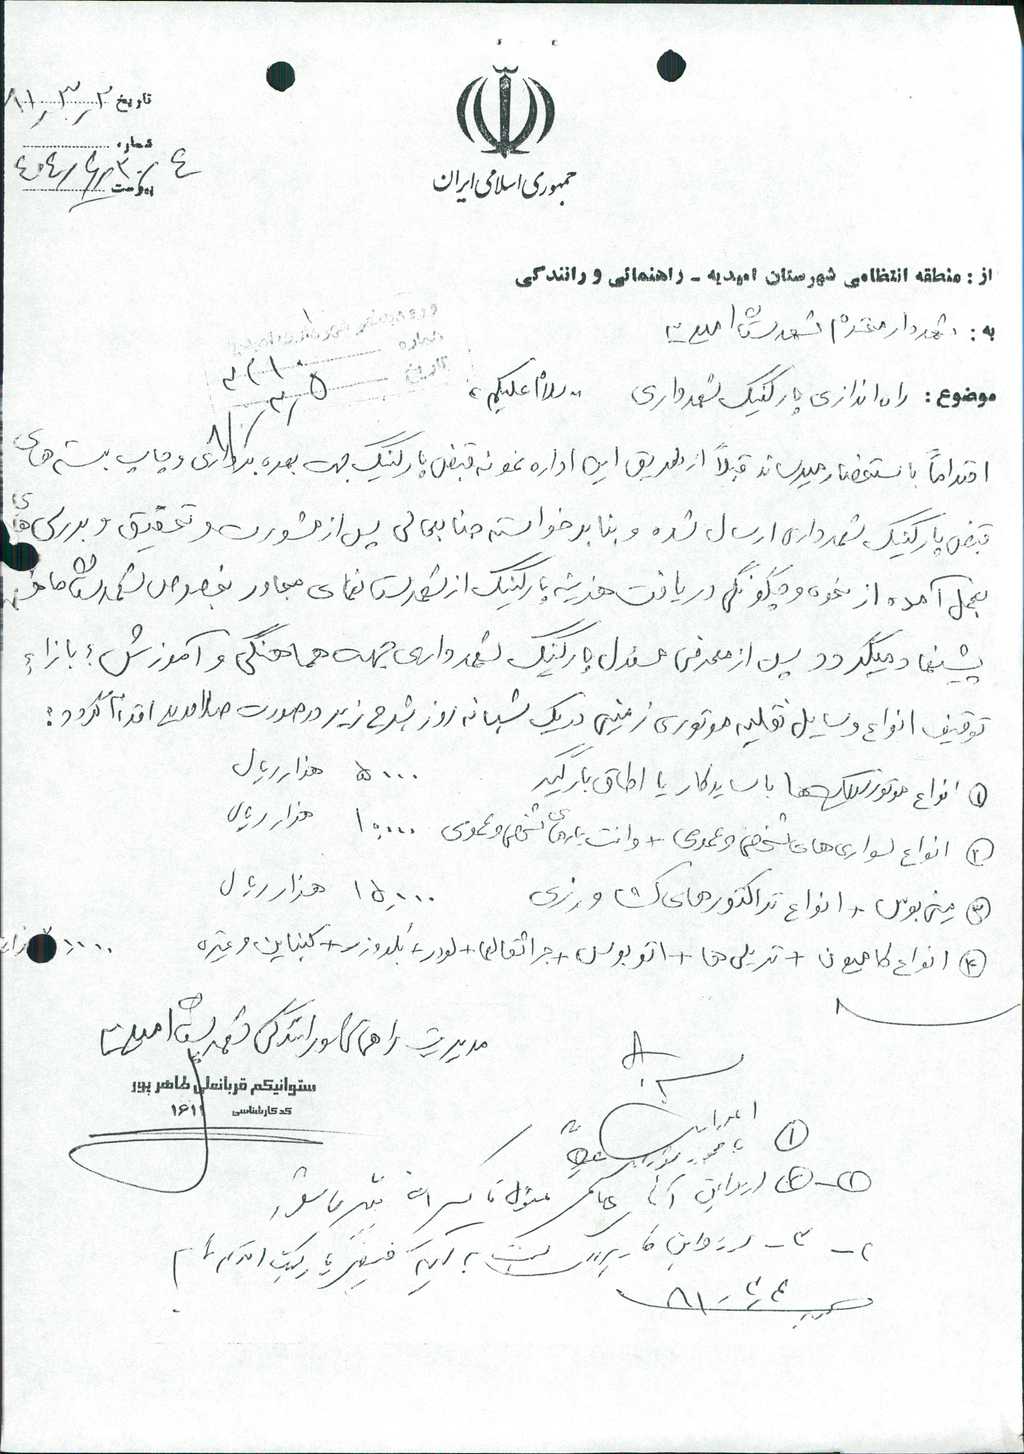 تاریخ ۸۱/۳/۲
شماره
پیوست
جمهوری اسلامی ایران
از : منطقه انتظامی شهرستان امیدیه - راهنمائی و رانندگی
به : شهردار محترم شهرستان امیدیه
شماره
تاریخ
موضوع : راه اندازی پارکینگ شهرداری " سلام علیکم "
احتراماً باستحضار میرساند قبلاً از طریق این اداره نمونه قبض پارکینگ جهت بهره برداری و چاپ بسته های
قبض پارکینگ شهرداری ارسال شده و بنا بدرخواست جنابعالی پس از مشورت و تحقیق و بررسی های
بعمل آمده از نحوه و چگونگی دریافت هزینه پارکینگ از شهرستانهای مجاور بخصوص شهرستان ماهشهر
پیشنهاد میگردد پس از معرفی مسئول پارکینگ شهرداری جهت هماهنگی و آموزش ؛ بازاء
توقیف انواع وسایل نقلیه موتوری زمینی در یک شبانه روز بشرح زیر در صورت صلاحدید اقدام گردد :
۱ انواع موتورسیکلت ها با سایدکار یا اطاق بارگیر ۵۰۰۰ هزار ریال
۲ انواع سواری های شخصی و عمومی + وانت بارهای شخصی و عمومی ۱۰۰۰۰ هزار ریال
۳ مینی بوس + انواع تراکتورهای کشاورزی ۱۵۰۰۰ هزار ریال
۴ انواع کامیون + تریلی ها + اتوبوس + جراثقالها + لودر + بلدوزر + کمباین و غیره
مدیریت راهنمائی و رانندگی شهرستان امیدیه
ستوانیکم قربانعلی طاهر پور
کد کارشناسی ۱۶۱۱
۱
۱-۲
۲-۳-